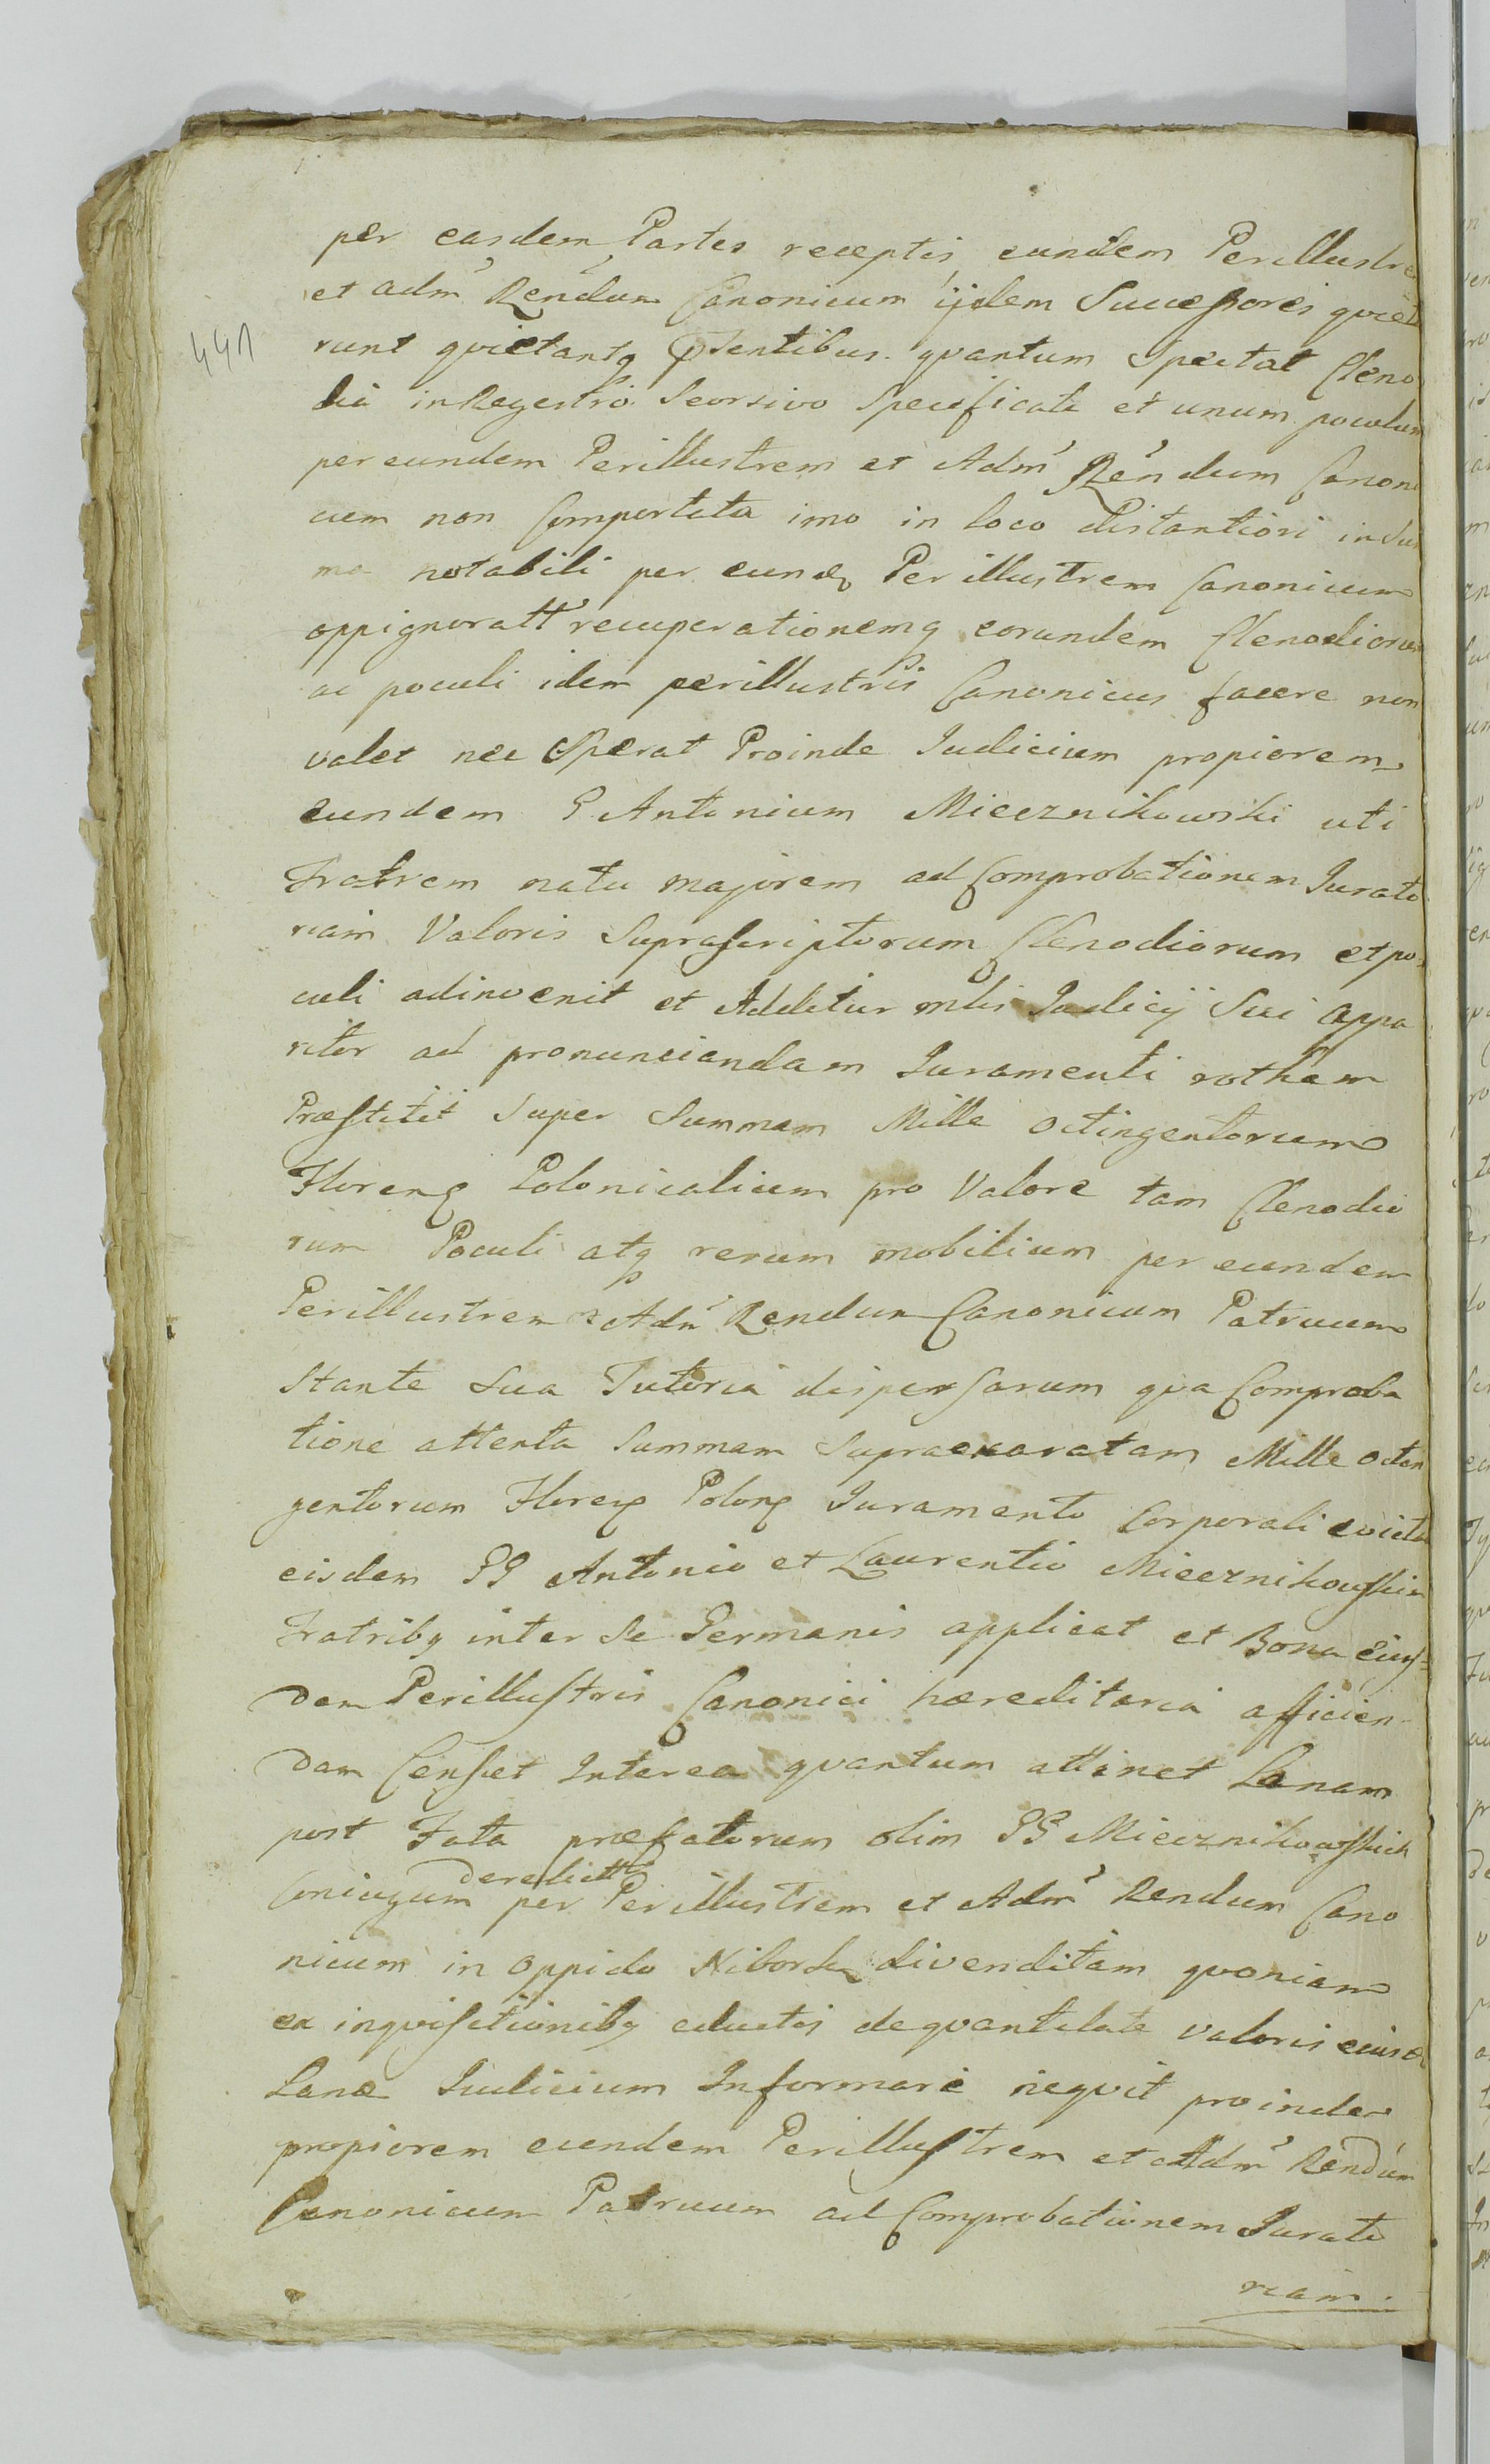 per easdem Partes receptis eundem Perillustre
et adm Rendum Canonicum ijdem Successores qviet
441
runt qvietantq psentibus qvantum Spectat Cleno
dia in Regestro Seorsivo Specificata et unum poculum
per eundem Perillustrem et Adm Rendum Canoni
cum non Comportata imo in loco distantiori in Su
ma notabili per eundq Perillustrem Canonicum
oppignoratt recuperationemq eorundem Clenodiorum
ac poculi idem perillustris Canonicus facere non
valet nec Sperat Proinde Judicium propiorem
eundem G Antonium Miecznikowski uti
Fratrem natu majorem ad Comprobationem Jurato
riam Valoris Suprascriptorum Clenodiorum et po
culi adinvenit et Additur mlis Judicij Sui appa
ritor ad pronunciandam Juramenti rotham
Præstitit Super Summam Mille octingentorum
Florenq Polonicalium pro Valore tam Clenodio
rum Poculi atq rerum mobilium per eundem
Perillustrem et Adm Rendum Canonicum Patruum
Stante Sua Tutoria dispersarum qva Comproba
tione attenta Summam Supraexaratam Mille octin
gentorum Floreq Polonq Juramento Corporali evicta
eisdem GG Antonio et Laurentio Miecznikowskim
Fratribq inter Se Germanis applicat et Bona Eius=
dem Perillustris Canonici hæreditaria afficien
dam Censet Interea qvantum attinet Lanam
post Fata præfatorum olim GG Miecznikowskich
Coniugum derelictt per Perillustrem et Adm Rendum Cano
nicum in oppido Nibork divenditam qvoniam
ex inqvisitionibq eductis de qvantitate valoris eiusd
Lanæ Judicium Informari neqvit proinde
propiorem eundem Perillustrem et Adm Rendum
Canonicum Patruum ad Comprobationem Jurato
riam.